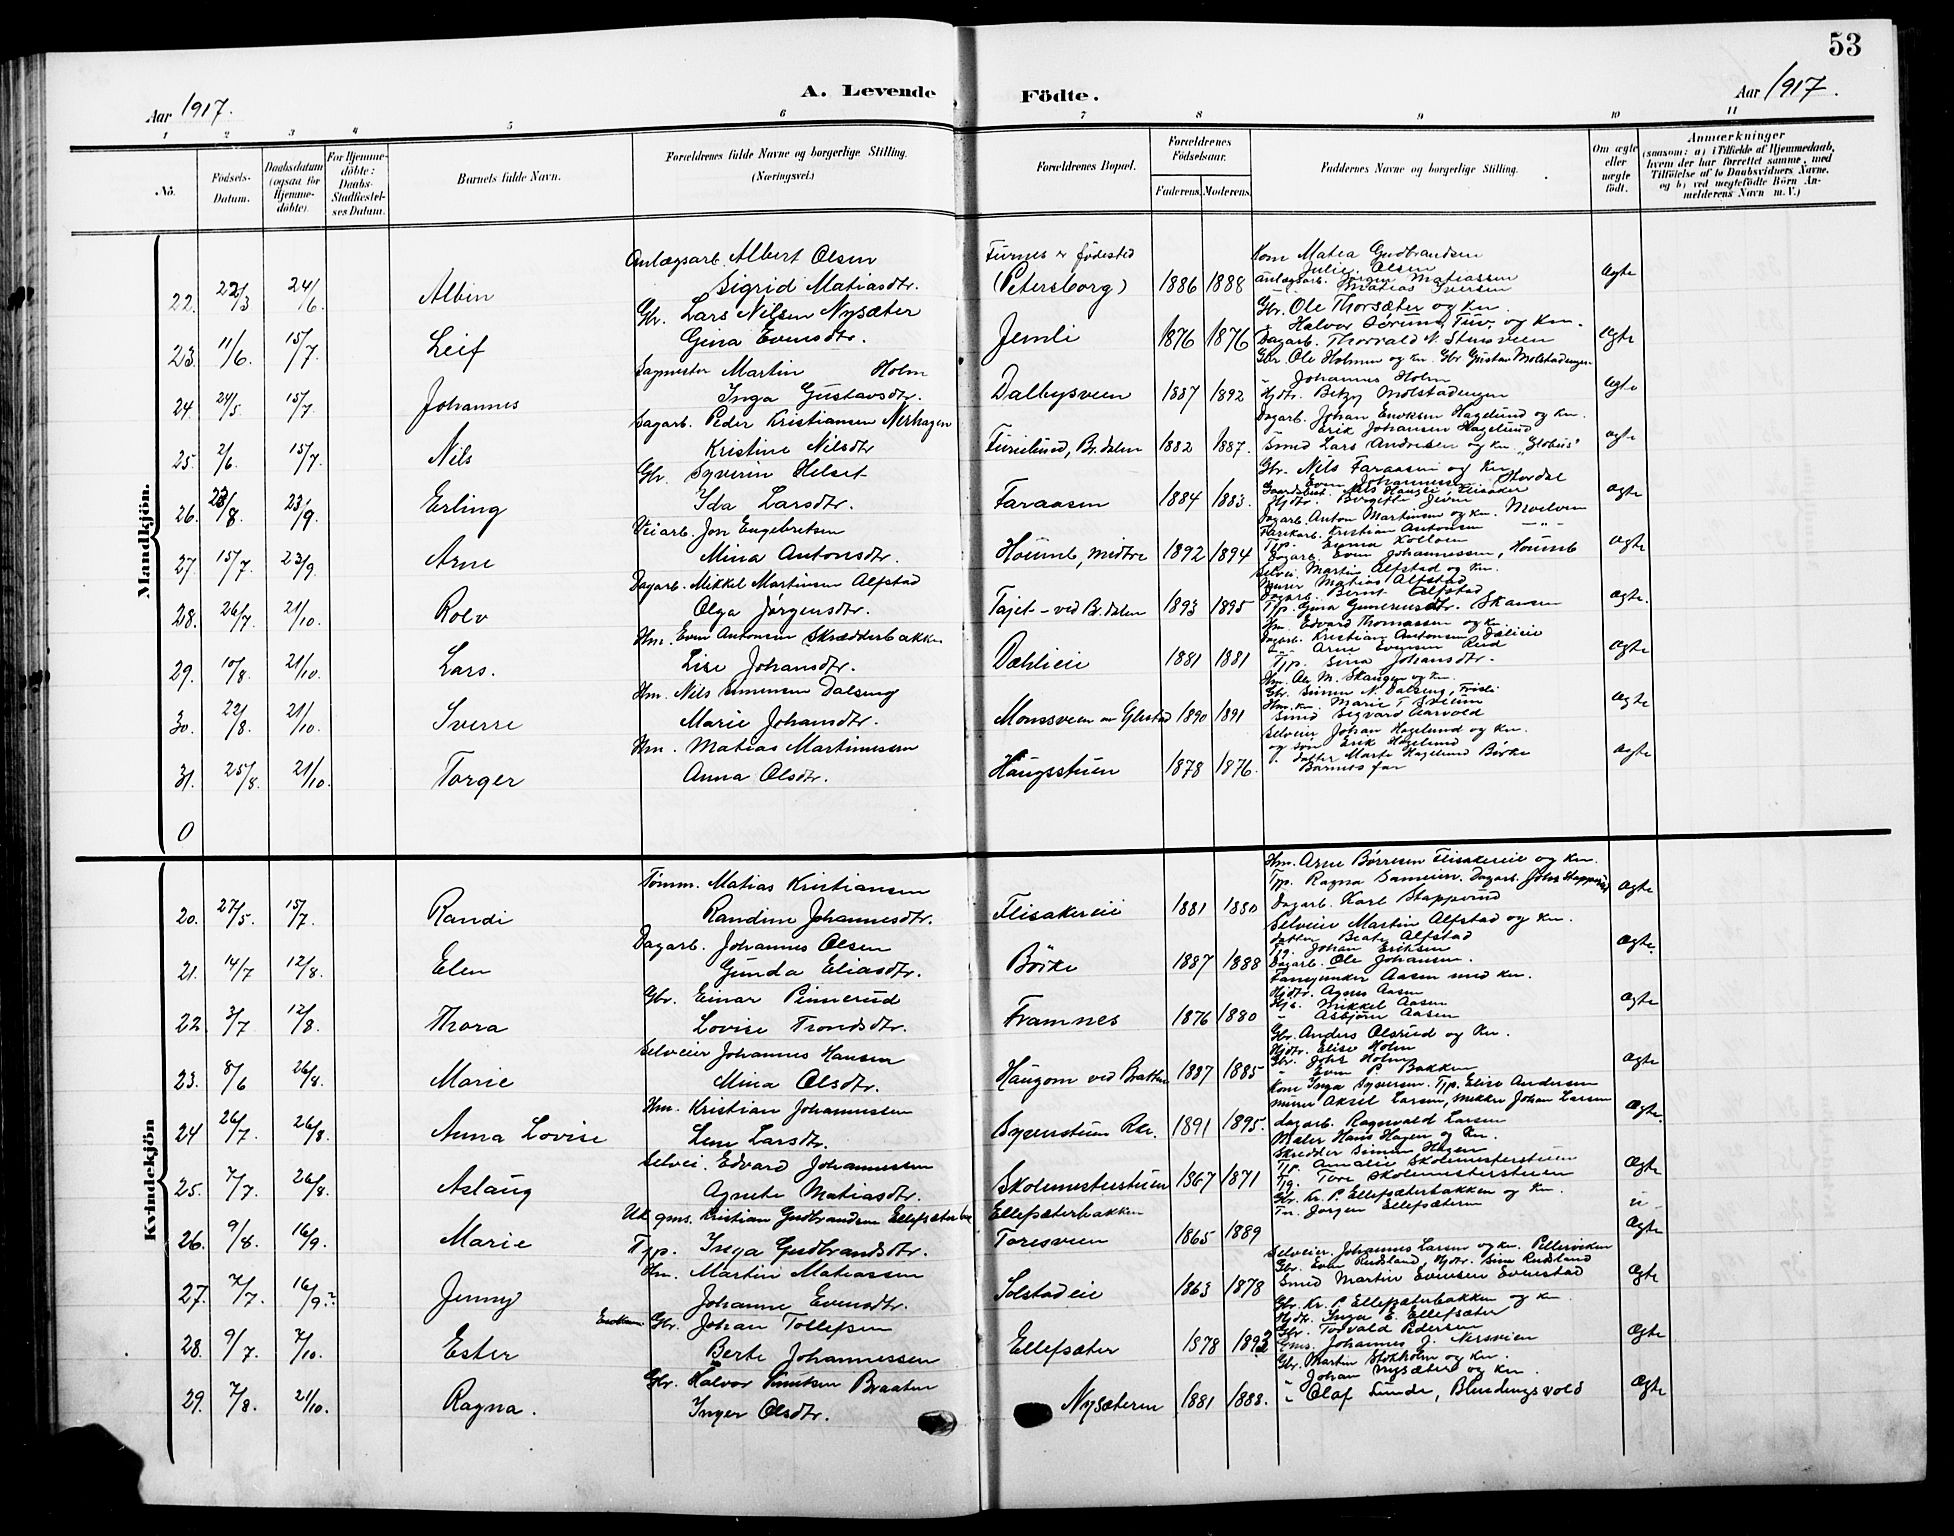 53
Aar 1917.
A. Levende Födte.
Aar 1917.
1 2 3 4 5 6 7 8 9 10 11
No.
Födsels-Datum.
Daabsdatum (ogsaa for Hjemme-döbte).
For Hjemme-döbte: Daabs-Stadfæstel-ses Datum.
Barnets fulde Navn.
Forældrenes fulde Navne og borgerlige Stilling. (Næringsvei.)
Forældrenes Bopæl.
Forældrenes Födselsaar.
Faderens. Moderens.
Faddernes Navne og borgerlige Stilling.
Om ægte eller uægte födt.
Anmærkninger
(saasom: a) i Tilfælde af Hjemmedaab, hvem der har forrettet samme, med Tilföielse af to Daabsvidners Navne, og b) ved uægtefödte Börn An-melderens Navn m. V.)
Mandkjön.
22. 22/3 24/6. Albin
Anlægsarb. Albert Olsen
Sigrid Matiasdtr.
Furnes er födested
(Petersborg) 1886 1888
Kone Matea Gudbrandsen
Julie Olsen
anlægsarb. Jørgen Matiassen
Matias Iversen
ægte
23. 11/6. 15/7 Leif
Gbr. Lars Nilsen Nysæter
Gina Evensdtr.
Jemli 1876 1876
Gbr. Ole Thorsæter og kn.
Dagarb. Thorvald N. Stensveen
ægte
24. 24/5. 15/7 Johannes
Sagmester Martin Holm
Inga Gustavsdtr.
Dalbysveen 1887 1892
Gbr. Ole Holmen og kn. Gbr Gustav Molstadengen
Johannes Holm
Hjdtr. Betzy Molstadengen
ægte
25. 2/6. 15/7. Nils
Sagarb. Peder Kristiansen Nerhagen
Kristine Nilsdtr
Furulund, Br.dalen 1882 1887.
Dagarb. Johan Eriksen Hagelund og kn.
Erik Johansen Hagelund
Smed Lars Andresen og kn. "Globus"
ægte
26. 23/8. 23/9. Erling
Gbr. Syverin Helset
Ida Larsdtr.
Faraasen 1884 1883.
Gbr. Nils Faraasen og kn.
Even Johannesen Stordal
ægte
27. 15/7. 23/9. Arne
Veiarb. Jon Engebretsen
Mina Antonsdtr.
Houmb, midtre 1892 1894
Dagarb. Anton Martinsen og kn. Moelven
Fabrikarb. Kristian Antonsen
Tjp. Emma Kolloen
Dagarb. Even Johannessen, Houmb
ægte
28. 26/7. 21/10. Rolv
Dagarb. Mikkel Martinsen Alfstad
Olga Jørgensdtr.
Tajet - ved Br.dalen 1893 1895
Selvei. Martin Alfstad og kn.
Murer Matias Alfstad
Dagarb. Bernt Alfstad
Tjp. Gina Gunerusdtr. Skansen
ægte.
29. 10/8. 21/10. Lars.
Hm. Even Antonsen Skrædderbakken
Lise Johansdtr.
Dæhlieie 1881 1881
Hm. Edvard Thomassen og kn.
Dagarb. Kristian Antonsen Dælieie
Arne Evensen Rud
Tjp. Lina Johansdtr.
ægte
30. 22/8. 21/10. Sverre
Hm. Nils Simensen Dalseng
Marie Johansdtr.
Monssveen av Glestad 1890 1891
Hm. Ole M. Skaugen og kn.
Gbr. Simen N. Dalseng, Frisli
Hm. kn. Marie T. Sveum
Smed Sigvard Aarvold
ægte
31. 25/8. 21/10. Torger
Hm. Matias Martinussen
Anna Olsdtr.
Haugsstuen 1878 1876.
Selveier Johan Hagelund og kn.
og søn Erik Hagelund
datter Marte Hagelund Börke
Barnets far
ægte
0
Kvindekjön
20. 27/5. 15/7. Randi
Tömm. Matias Kristiansen
Randine Johannesdtr.
Flisakereie 1881 1880
Hm. Arne Börresen Flisakereie og kn.
Tjp. Ragna Sameien. Dagarb. Johs Stapperud
Dagarb. Karl Stapperud
ægte
21. 14/7 12/8. Elen
Dagarb. Johannes Olsen
Gunda Eliasdtr.
Börke 1887 1888
Selveier Martin Alfstad og kn.
datter Beate Alfstad
Tg. Johan Eriksen
Dagarb. Ole Johansen.
ægte.
22 3/7 12/8. Thora
Gbr. Einar Pinnerud
Lovise Trondsdtr.
Framnes 1876 1880
Fanejunker Aasen med kn.
Hjdtr. Agnes Aasen
Hjs. Mikkel Aasen
" Asbjörn Aasen
ægte
23. 8/6 26/8. Marie
Selveier Johannes Hansen
Mina Olsdtr.
Haugom ved Bratten 1887 1885
Gbr. Anders Olsrud og kn.
Hjdtr. Elise Holm
Gbr. Johs Holm
" Even P. Bakken
ægte
24 26/7. 26/8. Anna Lovise
Hm. Kristian Johannessen
Lene Larsdtr.
1891 1895.
Kone Inga Syversen. Tjp. Elise Andersen
murer Aksel Larsen, Mikkel Johan Larsen
dagarb. Ragnvald Larsen
Ægte.
25. 7/7. 26/8. Aslaug
Selvei. Edvard Johannessen
Agnete Matiasdtr.
Skolemesterstuen 1867 1871
Maler Hans Hagen og kn.
Skredder Simen Hagen
Tjp. Amalie Skolemesterstuen
Tg. Tore Skolemesterstuen
Ægte
26. 9/8. 16/9. Marie
Uk gms. Kristian Gudbrandsen Ellefsæterbak
Tjp. Inga Gudbrandsdtr.
Ellefsæterbakken
Toresveen 1865 1889
Gbr. Kr. P. Ellefsæterbakken og kn.
Jørgen Ellefsæteren
u
Ægte
27. 7/7. 16/9. Jenny
Hm. Martin Matiassen
Johanne Evensdtr.
Solstadeie 1863 1878
Selveier Johannes Larsen og kn. Pellerviken
Gbr. Even Rudsland, Hjdtr. Sina Rudsland
Smed Martin Evensen Evenstad
Ægte
28. 9/7. 7/10. Ester
Enkem. Gbr. Johan Tollefsen
Berte Johannessen
Ellefsæter 1878 1892
Gbr. Kr. P. Ellefsæterbakken og kn
Hjdtr. Inga E. Ellefsæter
Gbr. Torvald Pedersen
Gms. Johannes J. Nersveen
Ægte
29. 7/8. 21/10. Ragna.
Gbr. Halvor Knutsen Braaten
Inger Olsdtr.
Nysæteren 1881 1888.
Gbr. Martin Stokholm og kn.
" Johan Nysæter og kn.
" Olaf Sunde, Blindingsvold
Ægte